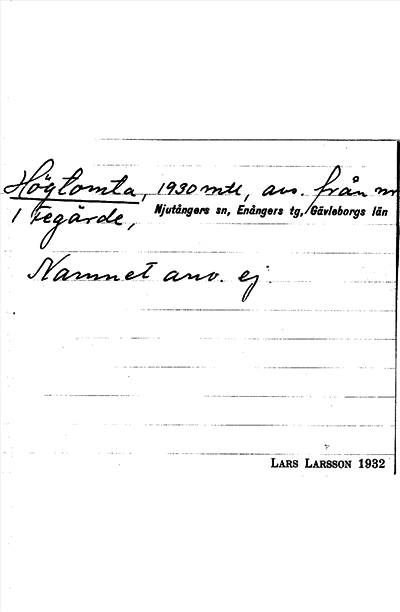 Högtomta, 1930 mtl, avs. från nr
1 Tegärde, Njutångers sn, Enångers tg, Gävleborgs län
Namnet anv. ej.
LARS LARSSON 1932